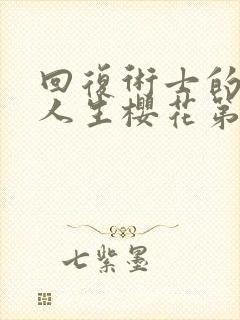 回復術士的
人生櫻花第
七紫墨